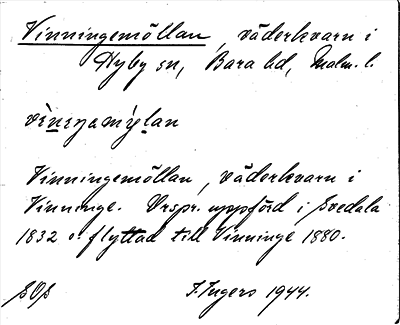 Vinningemöllan, väderkvarn i
Hyby sn, Bara hd, Malm. l.
Vinningemöllan, väderkvarn i
Vinninge. Urspr. uppförd i Svedala
1832 o. flyttad till Vinninge 1880.
I. Ingers 1944.